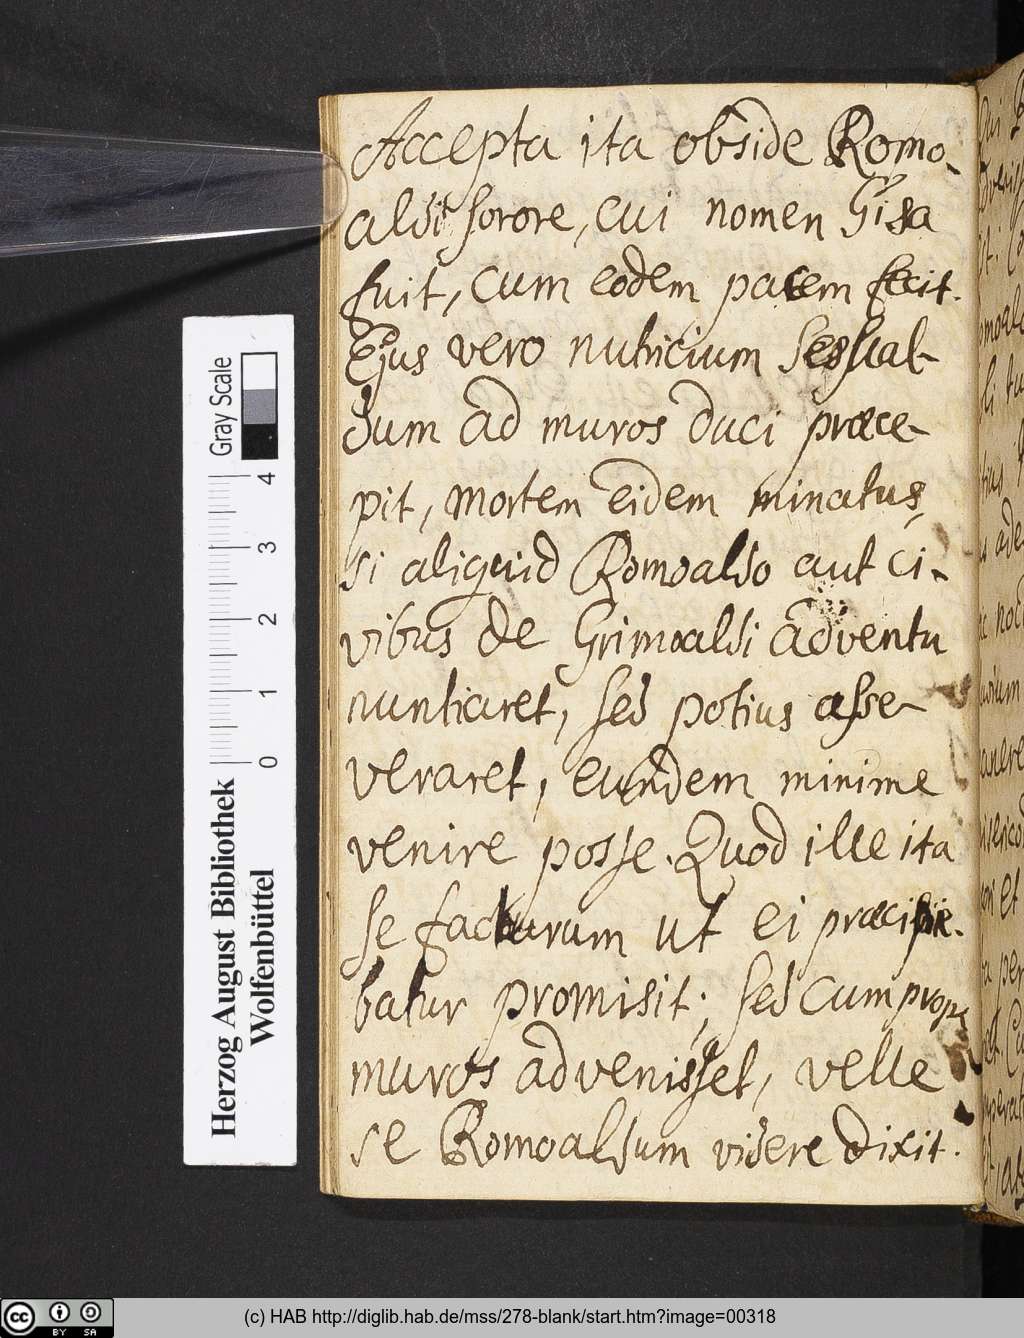 Accepta ita obside Romo-
aldi sorore, cui nomen Gisa
fuit, cum eodem pacem fecit.
Ejus vero nutricium Sessual-
dum ad muros duci præce-
pit, mortem eidem minatus,
si aliquid Romoaldo aut ci-
vibus de Grimoaldi adventu
nuntiaret, sed potius asse-
veraret, eundem minime
venire posse. Quod ille ita
se facturum ut ei præcipie-
batur promisit; sed cum prope
muros advenisset, velle
se Romoaldum videre dixit.
Gray Scale
4
3
2
1
0
Herzog August Bibliothek
Wolfenbüttel
cc BY SA
(c) HAB http://diglib.hab.de/mss/278-blank/start.htm?image=00318